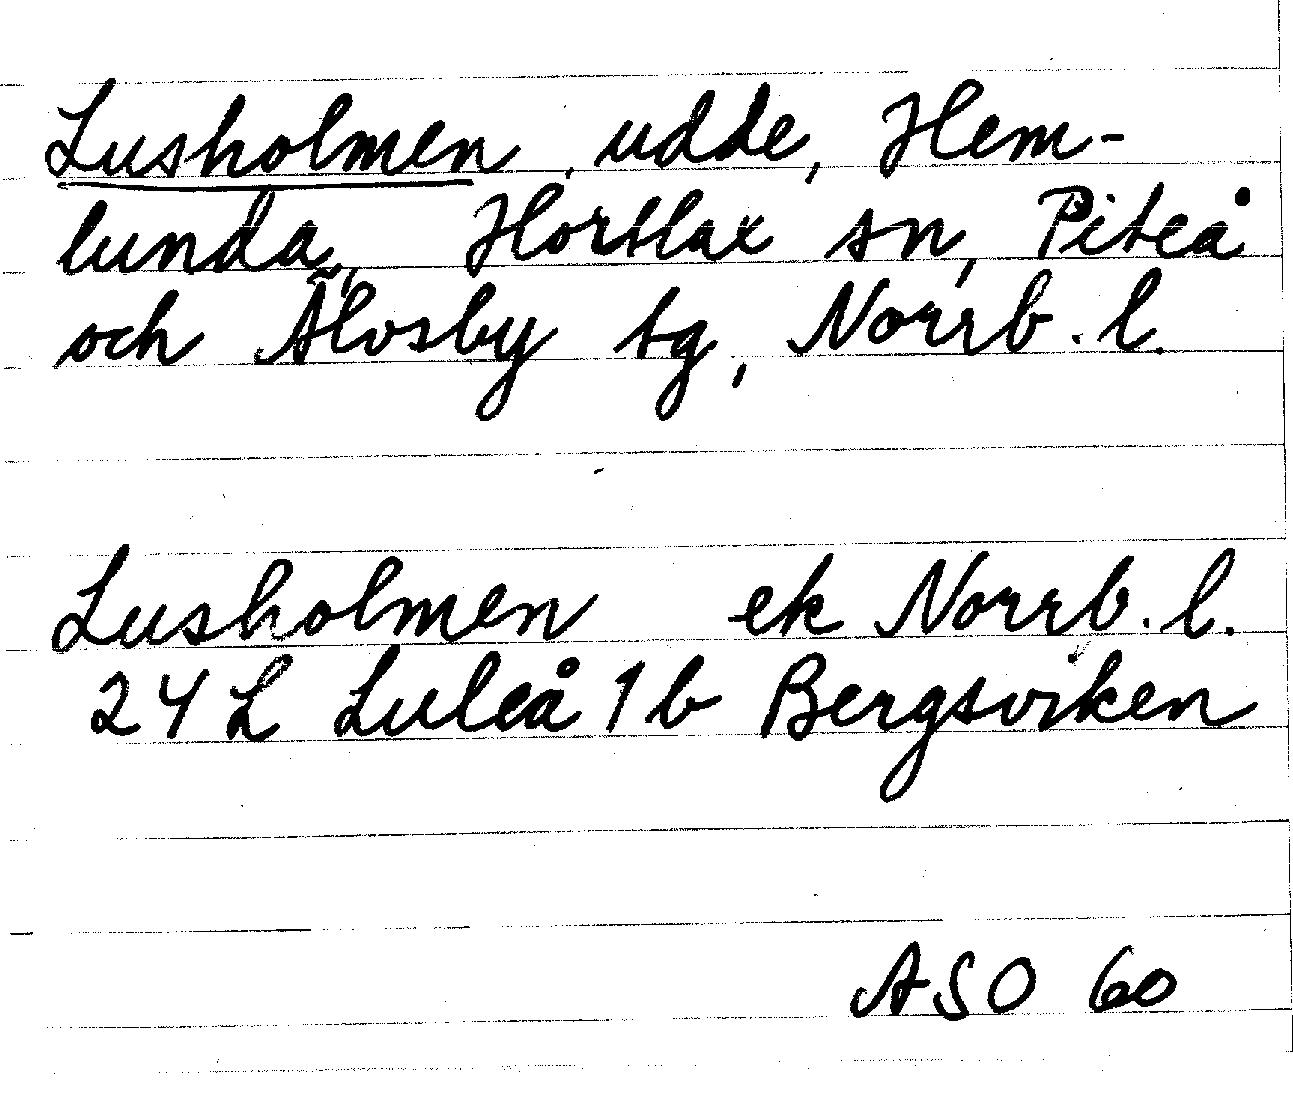 Lusholmen, udde, Hem-
lunda, Hortlax sn, Piteå
och Älvsby tg, Norrb. l.
Lusholmen ek Norrb. l.
24 L Luleå 1 b Bergsviken
ASO 60